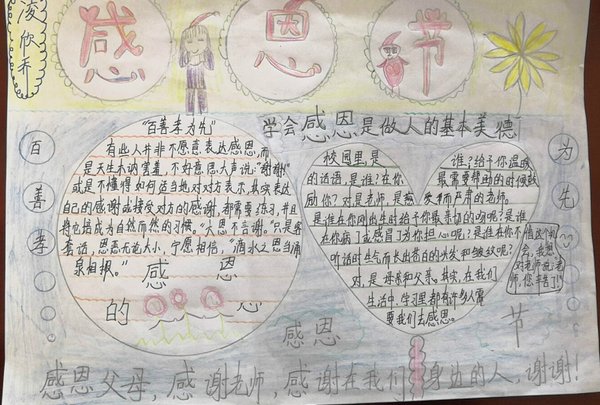 凌欣乔
感恩节
学会感恩是做人的基本美德
百善孝
为先
"百善孝为先"
有些人并非不愿意表达感恩,而
是天生木讷害羞,不好意思大声说:"谢谢!"
或是不懂得如何适当地对对方表示,其实表达
自己的感谢或接受对方的感谢,都需要练习,并且
将它培养为自然而然的习惯。"大恩不言谢。"只是客
套话,恩惠无论大小,宁愿相信,"滴水之恩当涌
泉相报。"
感恩
的心
校园里,是
谁?给予你温暖
的话语,是谁?在你
最需要帮助的时候鼓
励你?对,是老师,是慈爱而严肃的老师。
是谁在你刚出生时给予你最亲切的吻呢?是谁
在你病了或感冒了为你担心呢?是谁在你不
听话时生气而长出苍白的头发和皱纹呢?
对,是母亲和父亲。其实,在我们
生活中、学习里都有许多人需
要我们去感恩。
借这个机
会,我想
对老师说:老
师,您辛苦了!
感恩
节
感恩父母,感谢老师,感谢在我们身边的人,谢谢!